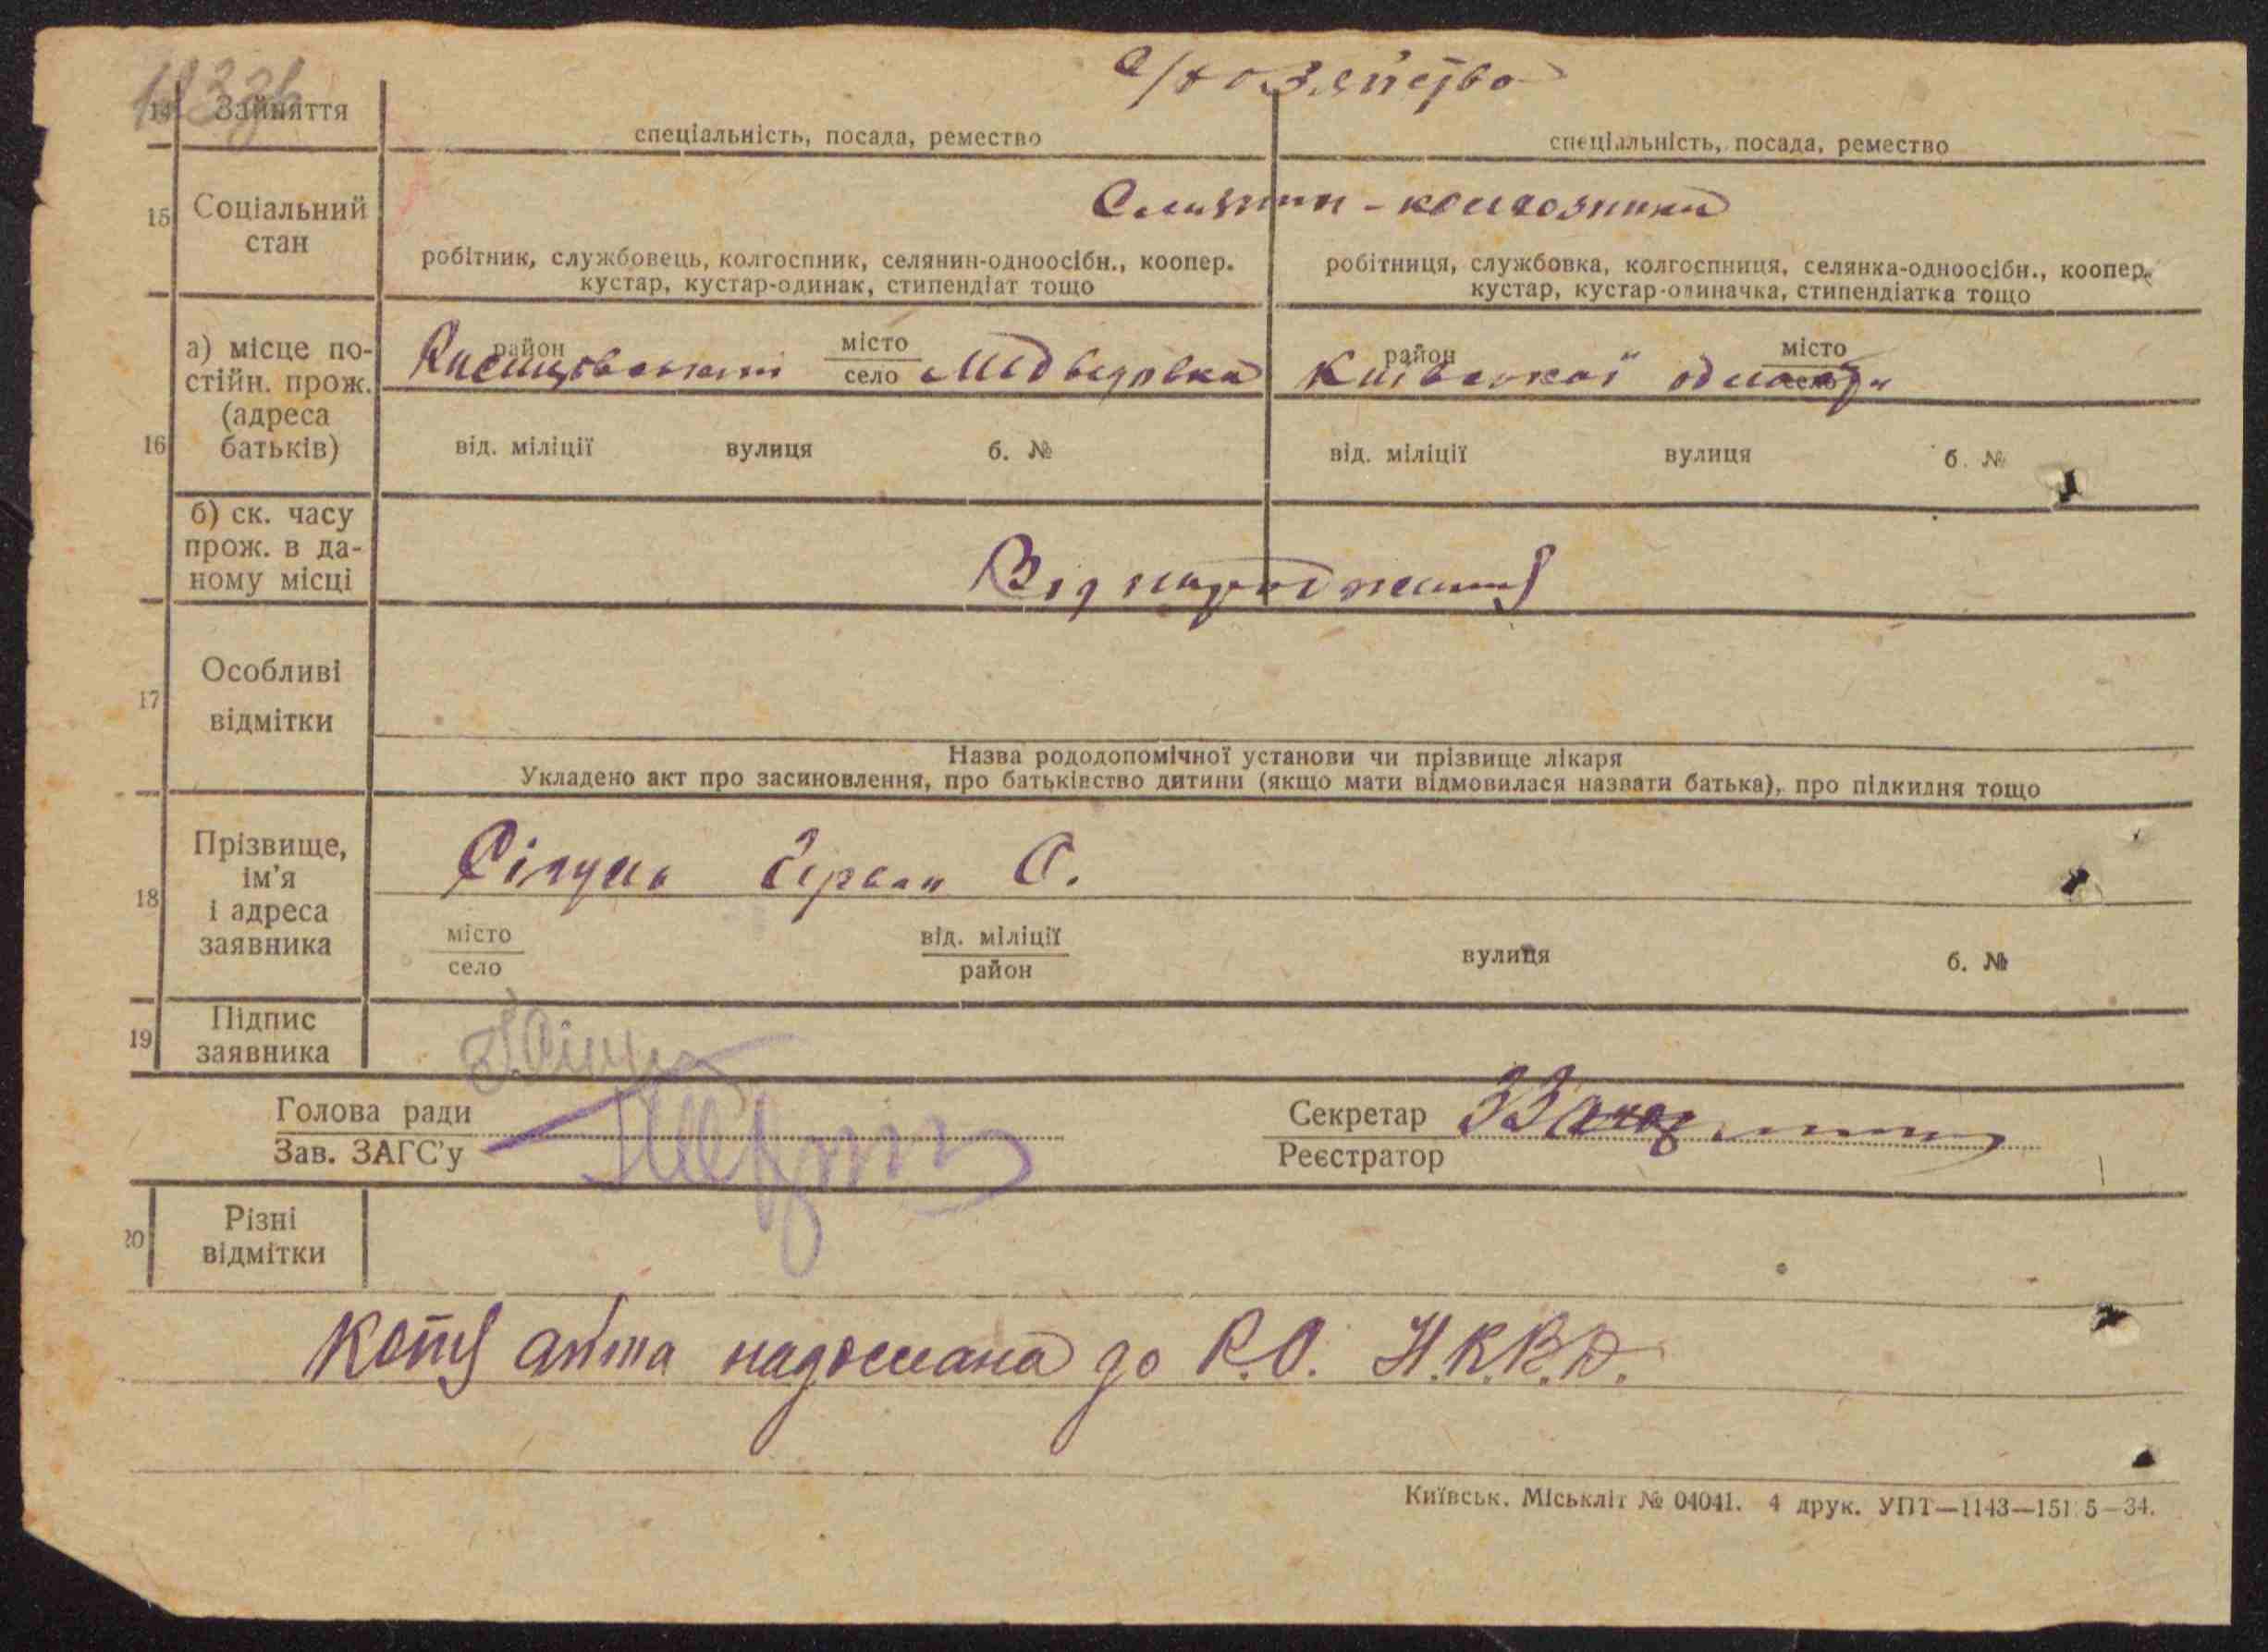 с/хозяйство
14 Зайняття
спеціальність, посада, ремество спеціальність, посада, ремество
15 Соціальний стан
Селяни-колгоспники
робітник, службовець, колгоспник, селянин-одноосібн., коопер.
кустар, кустар-одинак, стипендіат тощо
робітниця, службовка, колгоспниця, селянка-одноосібн., коопер.
кустар, кустар-одиначка, стипендіатка тощо
16 а) місце по-
стійн. прож.
(адреса
батьків)
район місто село Медведовка
район місто село Київської області
від. міліції вулиця б. № від. міліції вулиця б. №
б) ск. часу
прож. в да-
ному місці
Від народження
17 Особливі
відмітки
Назва рододопомічної установи чи прізвище лікаря
Укладено акт про засиновлення, про батьківство дитини (якщо мати відмовилася назвати батька), про підкидня тощо
18 Прізвище,
ім'я
і адреса
заявника
О.
місто від. міліції вулиця б. №
село район
19 Підпис
заявника
Голова ради Секретар
Зав. ЗАГС'у Реєстратор
20 Різні
відмітки
Копія акта надіслана до Р.О. Н.К.В.Д.
Київськ. Міськліт № 04041. 4 друк. УПТ—1143—151 5—34.